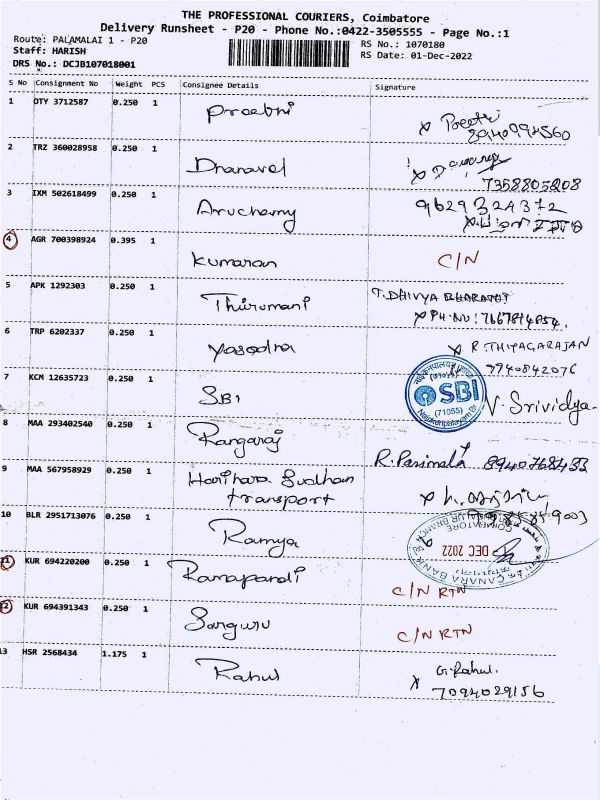 THE PROFESSIONAL COURIERS, Coimbatore
Delivery Runsheet - P20 - Phone No.:0422-3505555 - Page No.:1
Route: PALAMALAI 1 - P20
Staff: HARISH
DRS No.: DCJB107018001
RS No.: 1070180
RS Date: 01-Dec-2022
S No Consignment No Weight PCS Consignee Details Signature
1 OTY 3712587 0.250 1 Preethi
x Preethi
2 TRZ 360028958 0.250 1 Dhanavel
7358805208
3 IXM 502618499 0.250 1 Aruchamy
9629324372
4 AGR 700398924 0.395 1 Kumaran C/N
5 APK 1292303 0.250 1 Thirumani T. DHIVYA BHARATHI
x PH.NO:
6 TRP 6202337 0.250 1 Yasodha x R. THIYAGARAJAN
7940842076
7 KCM 12635723 0.250 1 SBI V. Srividya
SBI
(71055)
8 MAA 293402540 0.250 1 Rangaraj R. Parimala 8940768433
9 MAA 567958929 0.250 1 Harihara Sudhan
transport
10 BLR 2951713076 0.250 1 Ramya
COIMBATORE
DEC 2022
CANARA BANK
11 KUR 694220200 0.250 1 Ramapandi C/N RTN
12 KUR 694391343 0.250 1 Sanguru C/N RTN
13 HSR 2568434 1.175 1 Rahul G. Rahul.
x 7094029156